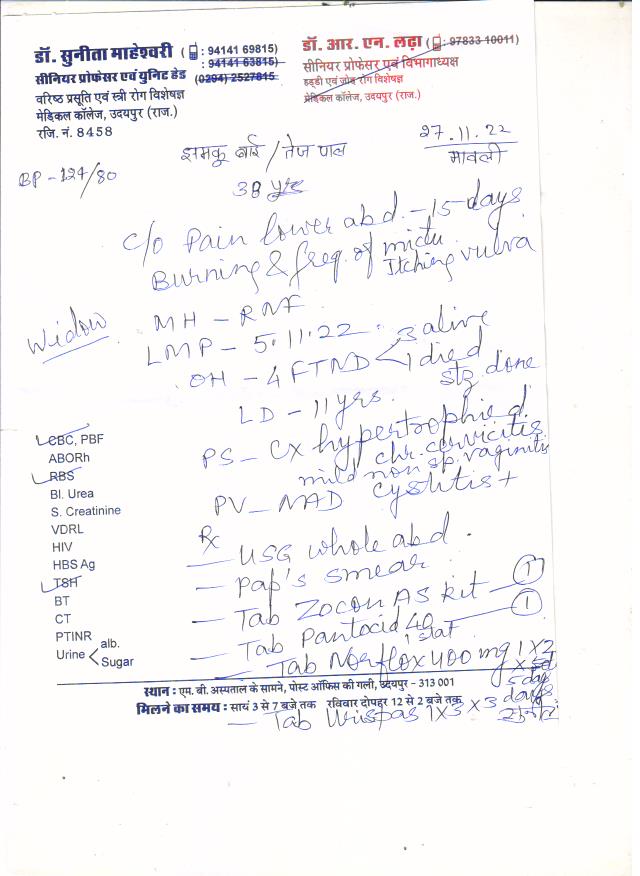 डॉ. सुनीता माहेश्वरी ( : 94141 69815)
: 94141 63815)
सीनियर प्रोफेसर एवं युनिट हेड (0294) 2527815
वरिष्ठ प्रसूति एवं स्त्री रोग विशेषज्ञ
मेडिकल कॉलेज, उदयपुर (राज.)
रजि. नं. 8458
डॉ. आर. एन. लढ़ा ( : 97833 10011)
सीनियर प्रोफेसर एवं विभागाध्यक्ष
हड्डी एवं जोड़ रोग विशेषज्ञ
मेडिकल कॉलेज, उदयपुर (राज.)
27.11.22
झमकू बाई / तेज पाल
मावली
BP - 124/80
38 yrs
c/o Pain lower abd. - 15 days
Burning & freq. of mictu
Itching vulva
Widow
MH - RNF
LMP - 5.11.22
OH - 4 FTND < 3 alive
1 died
stz. done
LD - 11 yrs.
PS - Cx hypertrophied.
chr. cervicitis
mild non sp. vaginitis
PV - NAD cystitis +
CBC, PBF
ABORh
RBS
Bl. Urea
S. Creatinine
VDRL
HIV
HBS Ag
TSH
BT
CT
PTINR
Urine < alb.
Sugar
Rx
- USG whole abd.
- Pap's smear
- Tab Zocon AS kit - 1
- Tab Pantocid 40 - 1
1 stat
- Tab Norflox 400 mg 1 x 2
x 5 days
- Tab Urispas 1 x 3 x 3 days
स्थान : एम. बी. अस्पताल के सामने, पोस्ट ऑफिस की गली, उदयपुर - 313 001
मिलने का समय : सायं 3 से 7 बजे तक रविवार दोपहर 12 से 2 बजे तक